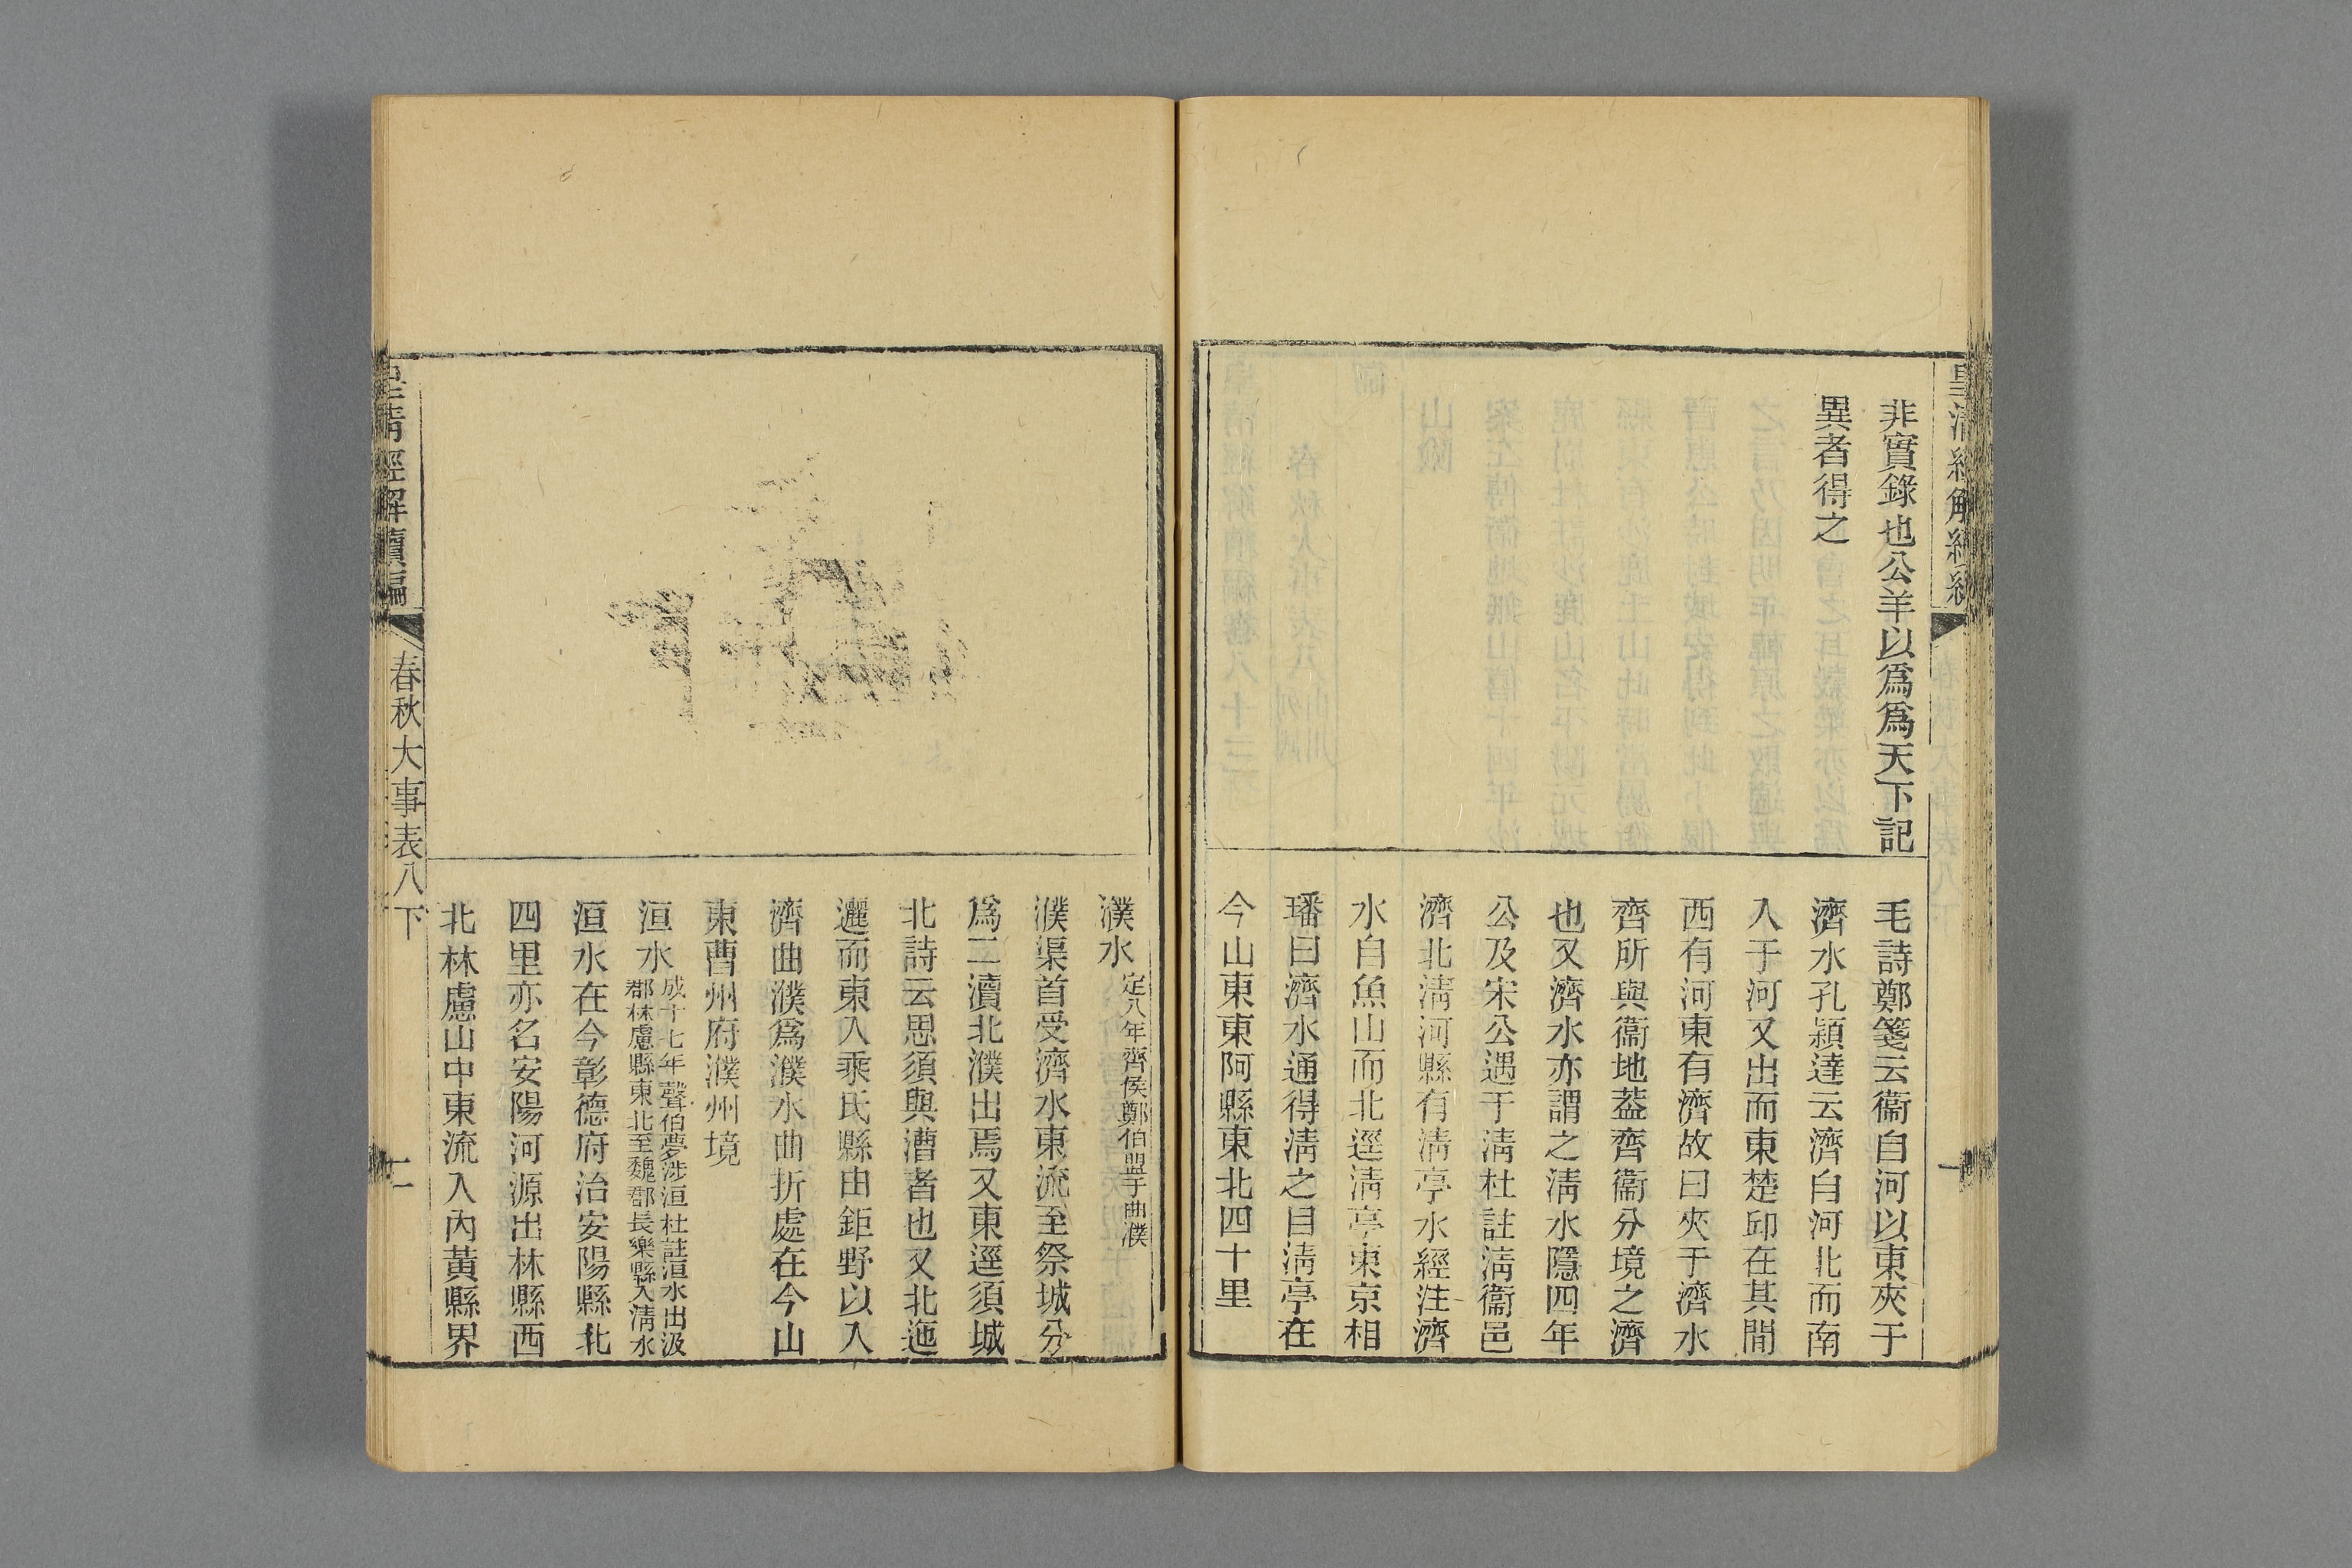 非實錄也公羊以爲爲天下記
異者得之
毛詩鄭箋云衞自河以東夾于
濟水孔頴達云濟自河北而南
入于河又出而東楚邱在其間
西有河東有濟故曰夾于濟水
齊所與衞地葢齊衞分境之濟
也又濟水亦謂之淸水隱四年
公及宋公遇于淸杜註淸衞邑
濟北淸河縣有淸亭水經注濟
水自魚山而北逕淸亭東京相
璠曰濟水通得淸之目淸亭在
今山東東阿縣東北四十里
濮水定八年齊侯鄭伯盟于曲濮
濮渠首受濟水東流至祭城分
爲二瀆北濮出焉又東逕須城
北詩云思須與漕者也又北迤
邐而東入乘氏縣由鉅野以入
濟曲濮爲濮水曲折處在今山
東曹州府濮州境
洹水成十七年聲伯夢涉洹杜註洹水出汲
郡林慮縣東北至魏郡長樂縣入淸水
洹水在今彰德府治安陽縣北
四里亦名安陽河源出林縣西
北林慮山中東流入內黃縣界
皇淸經解續編
春秋大事表八下
二